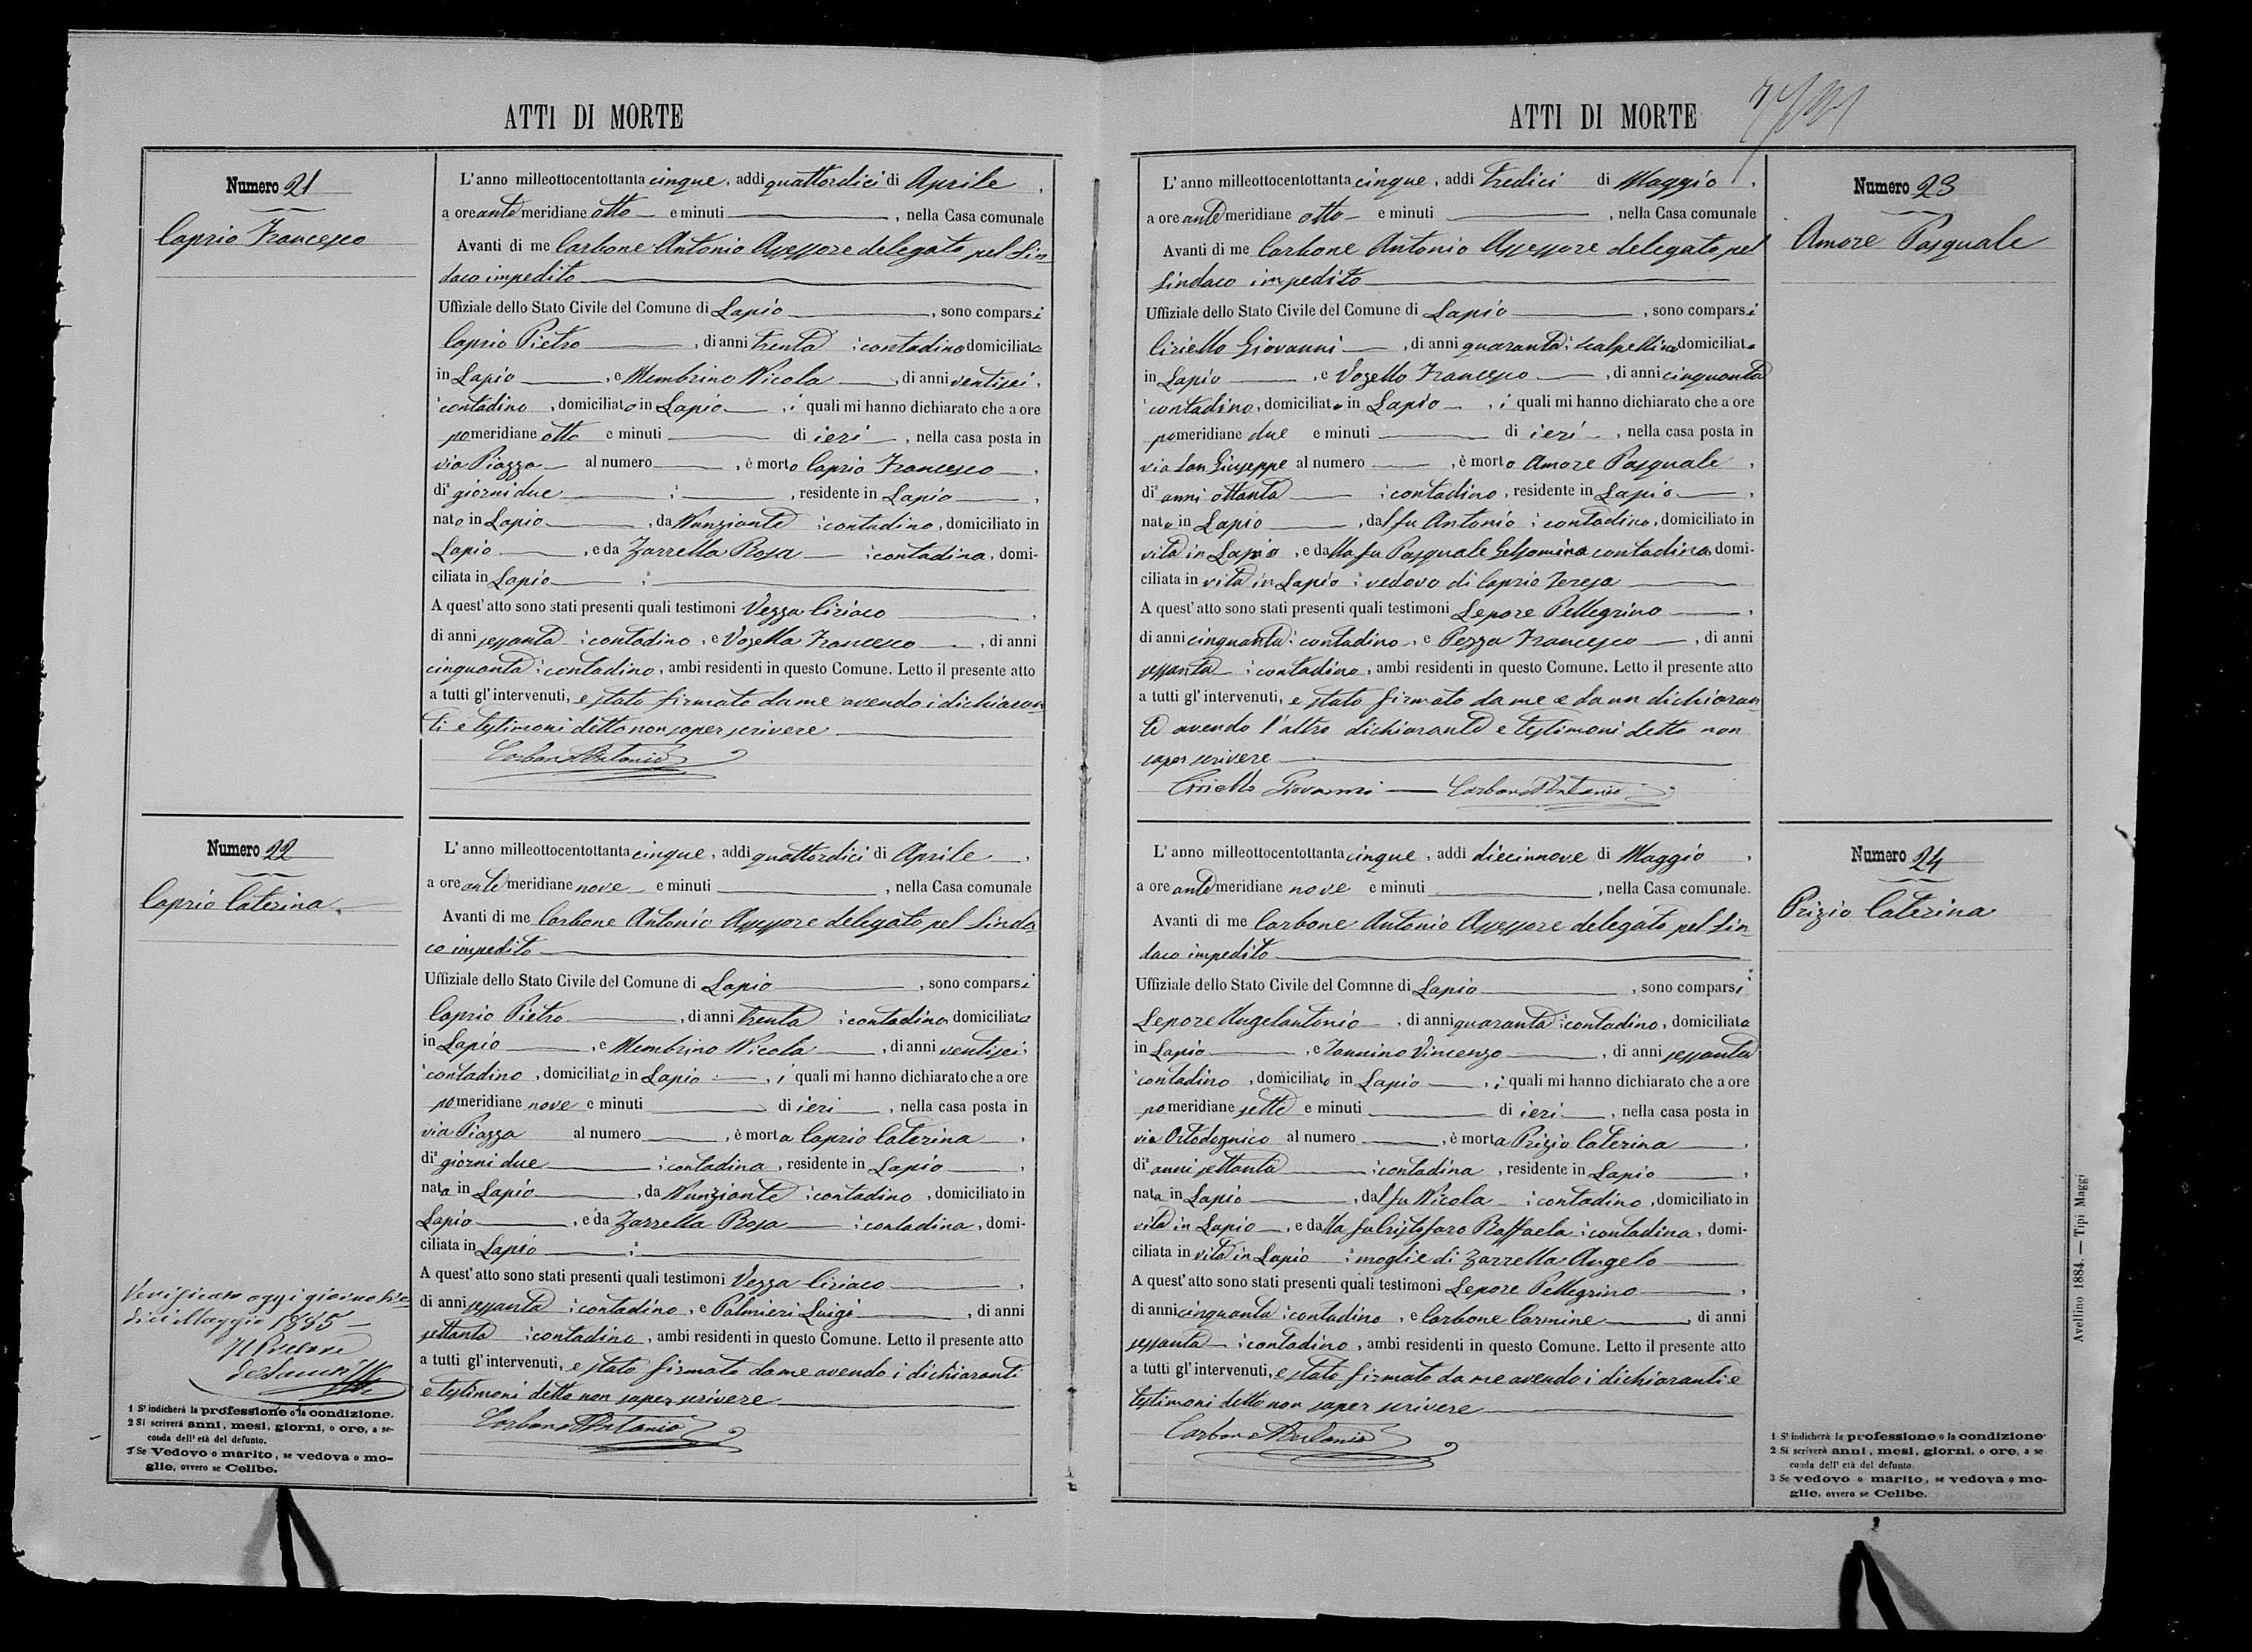 ATTI DI MORTE
Numero 21
Caprio Francesco
L'anno milleottocentottanta cinque, addi quattordici di Aprile,
a ore ante meridiane otto e minuti, nella Casa comunale
Avanti di me Carbone Antonio Assessore delegato pel Sin
daco impedito
Uffiziale dello Stato Civile del Comune di Lapio, sono comparsi
Caprio Pietro, di anni trenta, contadino domiciliato
in Lapio, e Membrino Nicola, di anni ventisei,
contadino, domiciliato in Lapio, i quali mi hanno dichiarato che a ore
pomeridiane otto e minuti di ieri, nella casa posta in
via Piazza al numero, è morto Caprio Francesco,
di² giorni due, residente in Lapio,
nato in Lapio, da Nunziante, contadino, domiciliato in
Lapio, e da Zarrella Rosa, contadina, domi-
ciliata in Lapio
A quest'atto sono stati presenti quali testimoni Vezza Ciriaco,
di anni sessanta, contadino, e Vozella Francesco, di anni
cinquanta, contadino, ambi residenti in questo Comune. Letto il presente atto
a tutti gl'intervenuti, e stato firmato da me avendo i dichiaran
ti e testimoni detto non saper scrivere
Carbone Antonio
Numero 22
Caprio Caterina
L'anno milleottocentottanta cinque, addi quattordici di Aprile,
a ore ante meridiane nove e minuti, nella Casa comunale
Avanti di me Carbone Antonio Assessore delegato pel Sinda
co impedito
Uffiziale dello Stato Civile del Comune di Lapio, sono comparsi
Caprio Pietro, di anni trenta, contadino domiciliato
in Lapio, e Membrino Nicola, di anni ventisei,
contadino, domiciliato in Lapio, i quali mi hanno dichiarato che a ore
pomeridiane nove e minuti di ieri, nella casa posta in
via Piazza al numero, è morta Caprio Caterina,
di² giorni due, contadina, residente in Lapio,
nata in Lapio, da Nunziante, contadino, domiciliato in
Lapio, e da Zarrella Rosa, contadina, domi-
ciliata in Lapio
A quest'atto sono stati presenti quali testimoni Vezza Ciriaco,
di anni sessanta, contadino, e Palmieri Luigi, di anni
settanta, contadino, ambi residenti in questo Comune. Letto il presente atto
a tutti gl'intervenuti, e stato firmato da me avendo i dichiaranti
e testimoni detto non saper scrivere
Carbone Antonio
Verificato oggi giorno
dici Maggio 1885
Il Pretore
1 S'indicherà la professione o la condizione.
2 Si scriverà anni, mesi, giorni, o ore, a se-
conda dell'età del defunto.
3 Se Vedovo o marito, se vedova o mo-
glie, ovvero se Celibe.
ATTI DI MORTE
Numero 23
Amore Pasquale
L'anno milleottocentottanta cinque, addi tredici di Maggio,
a ore ante meridiane otto e minuti, nella Casa comunale
Avanti di me Carbone Antonio Assessore delegato pel
Sindaco impedito
Uffiziale dello Stato Civile del Comune di Lapio, sono comparsi
Ciriello Giovanni, di anni quaranta, scalpellino domiciliato
in Lapio, e Vozello Francesco, di anni cinquanta
contadino, domiciliato in Lapio, i quali mi hanno dichiarato che a ore
pomeridiane due e minuti di ieri, nella casa posta in
via San Giuseppe al numero, è morto Amore Pasquale,
di² anni ottanta, contadino, residente in Lapio,
nato in Lapio, dal fu Antonio, contadino, domiciliato in
vita in Lapio, e dalla fu Pasquale Gelsomina contadina, domi-
ciliata in vita in Lapio, vedovo di Caprio Teresa
A quest'atto sono stati presenti quali testimoni Lepore Pellegrino,
di anni cinquanta, contadino, e Pezza Francesco, di anni
sessanta, contadino, ambi residenti in questo Comune. Letto il presente atto
a tutti gl'intervenuti, e stato firmato da me e da un dichiaran
te avendo l'altro dichiarante e testimoni detto non
saper scrivere
Ciriello Giovanni — Carbone Antonio
Numero 24
Prizio Caterina
L'anno milleottocentottanta cinque, addi diecinnove di Maggio,
a ore ante meridiane nove e minuti, nella Casa comunale.
Avanti di me Carbone Antonio Assessore delegato pel Sin
daco impedito
Uffiziale dello Stato Civile del Comnne di Lapio, sono comparsi
Lepore Angelantonio, di anni quaranta, contadino, domiciliato
in Lapio, e Iannino Vincenzo, di anni sessanta
contadino, domiciliato in Lapio, i quali mi hanno dichiarato che a ore
pomeridiane sette e minuti di ieri, nella casa posta in
via Ortodognico al numero, è morta Prizio Caterina,
di² anni settanta, contadina, residente in Lapio,
nata in Lapio, dal fu Nicola, contadino, domiciliato in
vita in Lapio, e dalla fu Cristofaro Raffaela, contadina, domi-
ciliata in vita in Lapio, moglie di Zarrella Angelo
A quest'atto sono stati presenti quali testimoni Lepore Pellegrino,
di anni cinquanta, contadino, e Carbone Carmine, di anni
sessanta, contadino, ambi residenti in questo Comune. Letto il presente atto
a tutti gl'intervenuti, e stato firmato da me avendo i dichiaranti e
testimoni detto non saper scrivere
Carbone Antonio
1 S'indicherà la professione o la condizione
2 Si scriverà anni, mesi, giorni, o ore, a se
conda dell'età del defunto
3 Se vedovo o marito, se vedova o mo-
glie, ovvero se Celibe.
Avellino 1884. — Tipi Maggi